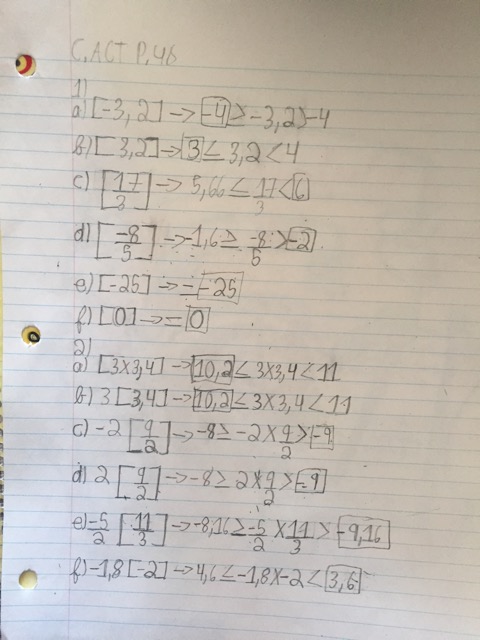 C, ACT P, 46
1)
a) [-3,2] → -4 ≥ -3,2 > -4
b) [3,2] → 3 ≤ 3,2 < 4
c) [17/3] → 5,66 ≤ 17/3 < 6
d) [-8/5] → -1,6 ≥ -8/5 > -2
e) [-25] → = -25
f) [0] → = 0
2)
a) [3x3,4] → 10,2 ≤ 3x3,4 < 11
b) 3 [3,4] → 10,2 ≤ 3x3,4 < 11
c) -2 [9/2] → -8 ≥ -2x9/2 > -9
d) 2 [9/2] → -8 ≥ 2x9/2 > -9
e) -5/2 [11/3] → -8,16 ≥ -5/2 x 11/3 > -9,16
f) -1,8 [-2] → 4,6 ≤ -1,8x-2 < 3,6